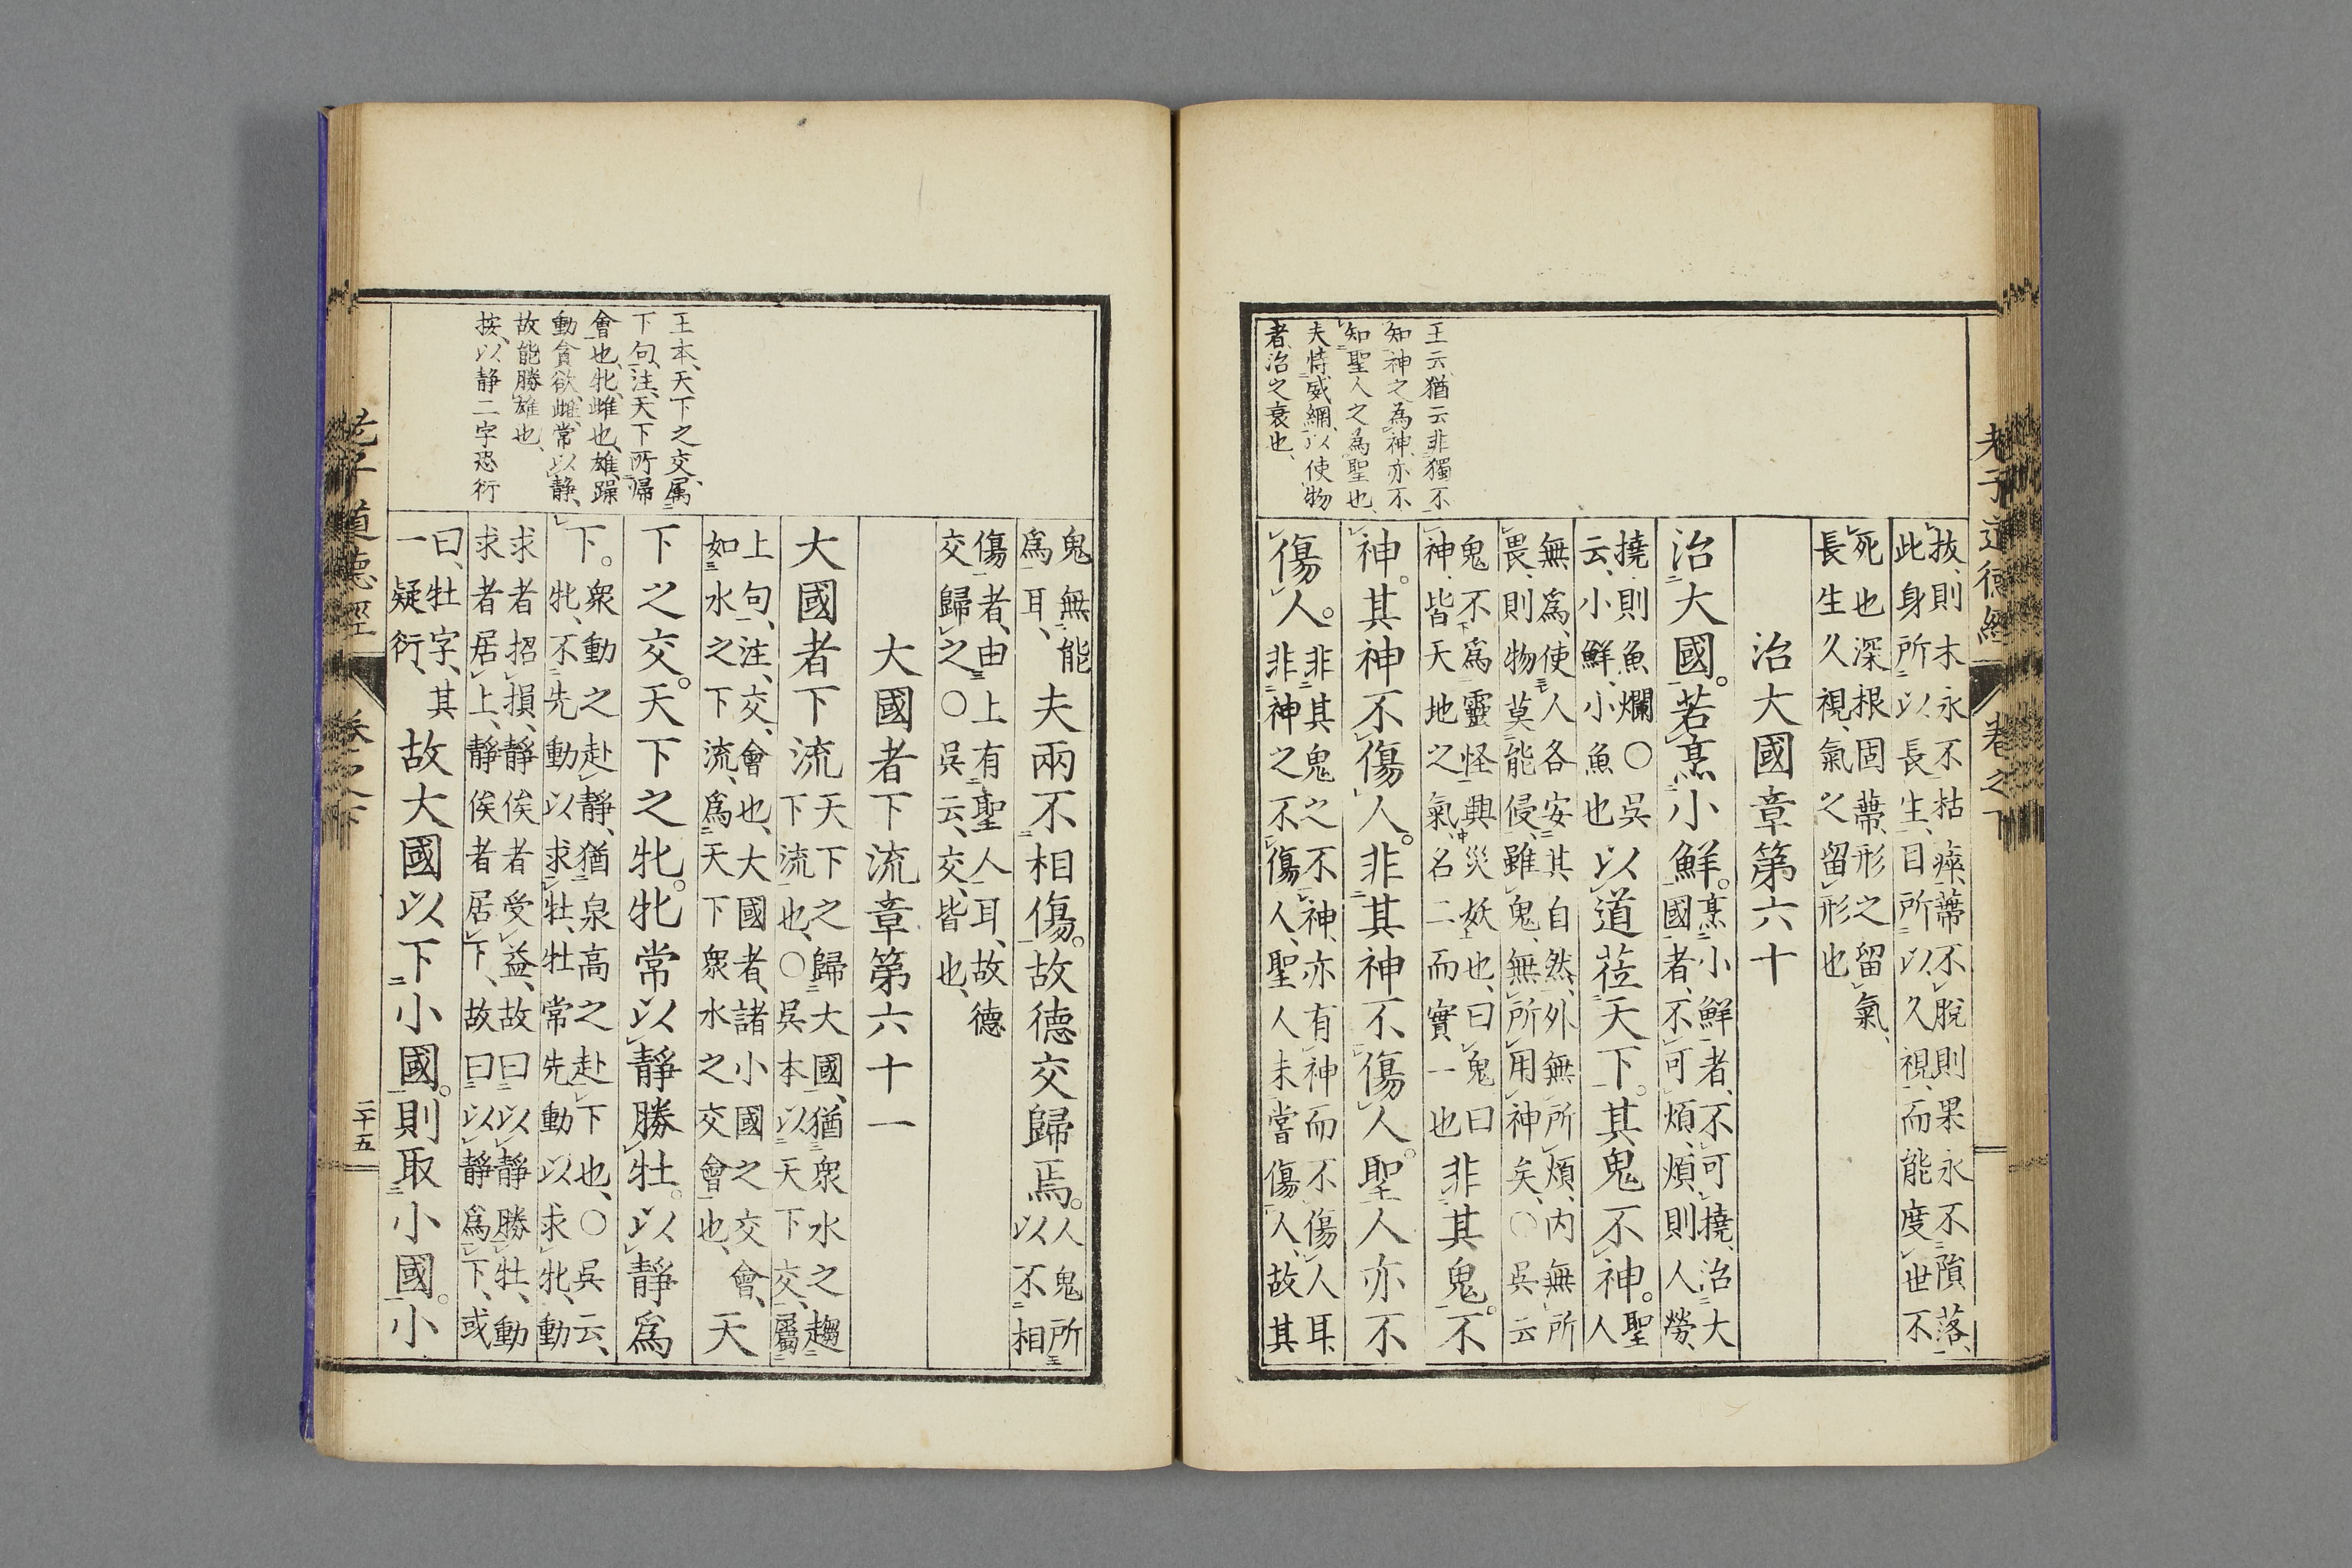 老子道德經
卷之下
王云猶云非獨不
知神之為神亦不
知聖人之為聖也
夫恃威網以使物
者治之衰也
拔則木永不枯瘁蔕不脫則果永不隕落
此身所以長生日所以久視而能度世不
死也深根固蔕形之留氣
長生久視氣之留形也
治大國章第六十
治大國若烹小鮮烹小鮮者不可撓治大
國者不可煩煩則人勞
撓則魚爛〇吳
云小鮮小魚也
以道莅天下其鬼不神聖
人
無為使人各安其自然外無所煩內無所
畏則物莫能侵雖鬼無所用神矣〇吳云
鬼不為靈怪興災妖也曰鬼曰
神皆天地之氣名二而實一也
非其鬼不
神其神不傷人非其神不傷人聖人亦不
傷人非其鬼之不神亦有神而不傷人耳
非神之不傷人聖人未嘗傷人故其
鬼無能
為耳
夫兩不相傷故德交歸焉人鬼所
以不相
傷者由上有聖人耳故德
交歸之〇吳云交皆也
大國者下流章第六十一
大國者下流天下之歸大國猶衆水之趨
下流也〇吳本以天下交屬
上句注交會也大國者諸小國之交會
如水之下流為天下衆水之交會也
天
下之交天下之牝牝常以靜勝牡以靜為
下衆動之赴靜猶泉高之赴下也〇吳云
牝不先動以求牡牡常先動以求牝動
求者招損靜俟者受益故曰以靜勝牡動
求者居上靜俟者居下故曰以靜為下或
曰牡字其
一疑衍
故大國以下小國則取小國小
王本天下之交屬
下句注天下所歸
會也牝雌也雄躁
動貪欲雌常以静
故能勝雄也
按以静二字恐衍
老子道德經
卷之下
二十五